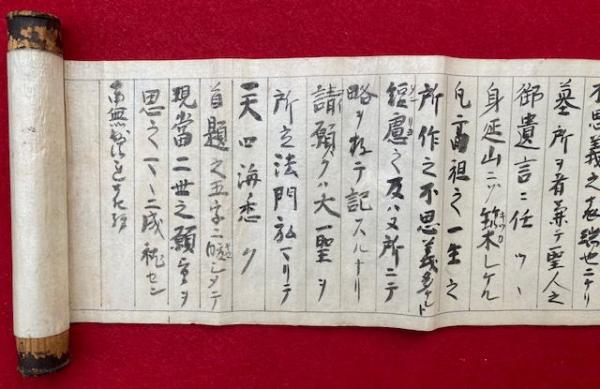 不思義之表瑞也ニケリ
墓所ヲ者兼テ聖人之
御遺言ニ任ツヽ
身延山ニゾ築レケル
凡高祖之一生之
所作之不思義多
短慮之及ハヌ所ニテ
略ヲ存テ記スルナリ
請願クハ大一聖ヲ
所立法門弘マリテ
一天四海悉ク
首題之五字ニ シタテ
現當二世之願望ヲ
思之マヽニ成就セン
南無妙法蓮華経